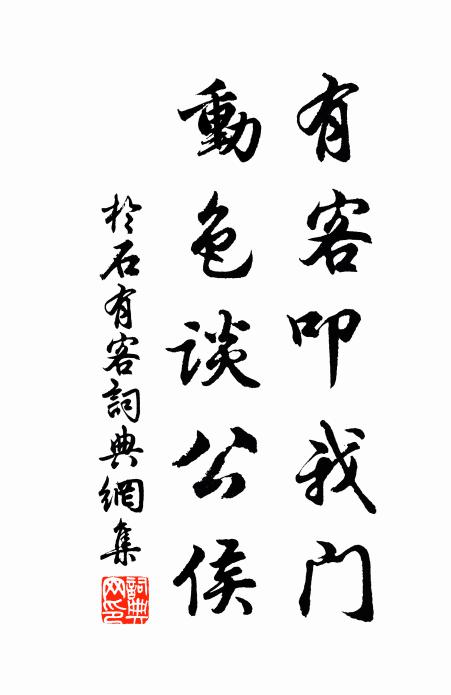 有客叩我门
動色谈公侯
於石有客詞典網集
詞典网印